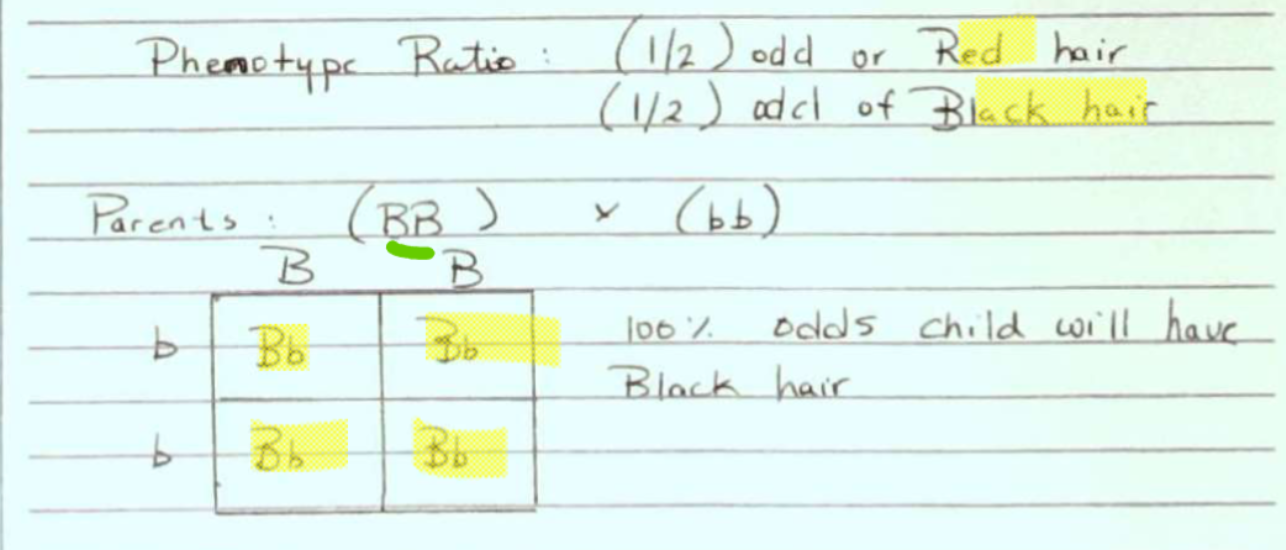 Phenotype Ratio : (1/2) odd or Red hair
(1/2) odd of Black hair
Parents : (BB) x (bb)
B B
b Bb Bb 100% odds child will have
Black hair
b Bb Bb